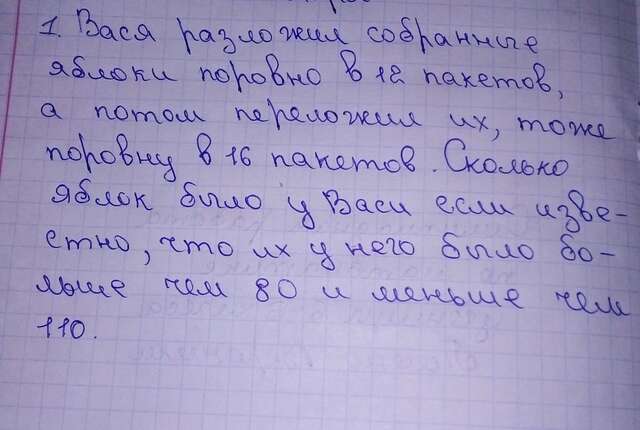 1. Вася разложил собранные
яблоки поровно в 12 пакетов,
а потом переложил их, тоже
поровну в 16 пакетов. Сколько
яблок было у Васи если изве-
стно, что их у него было бо-
льше чем 80 и меньше чем
110.